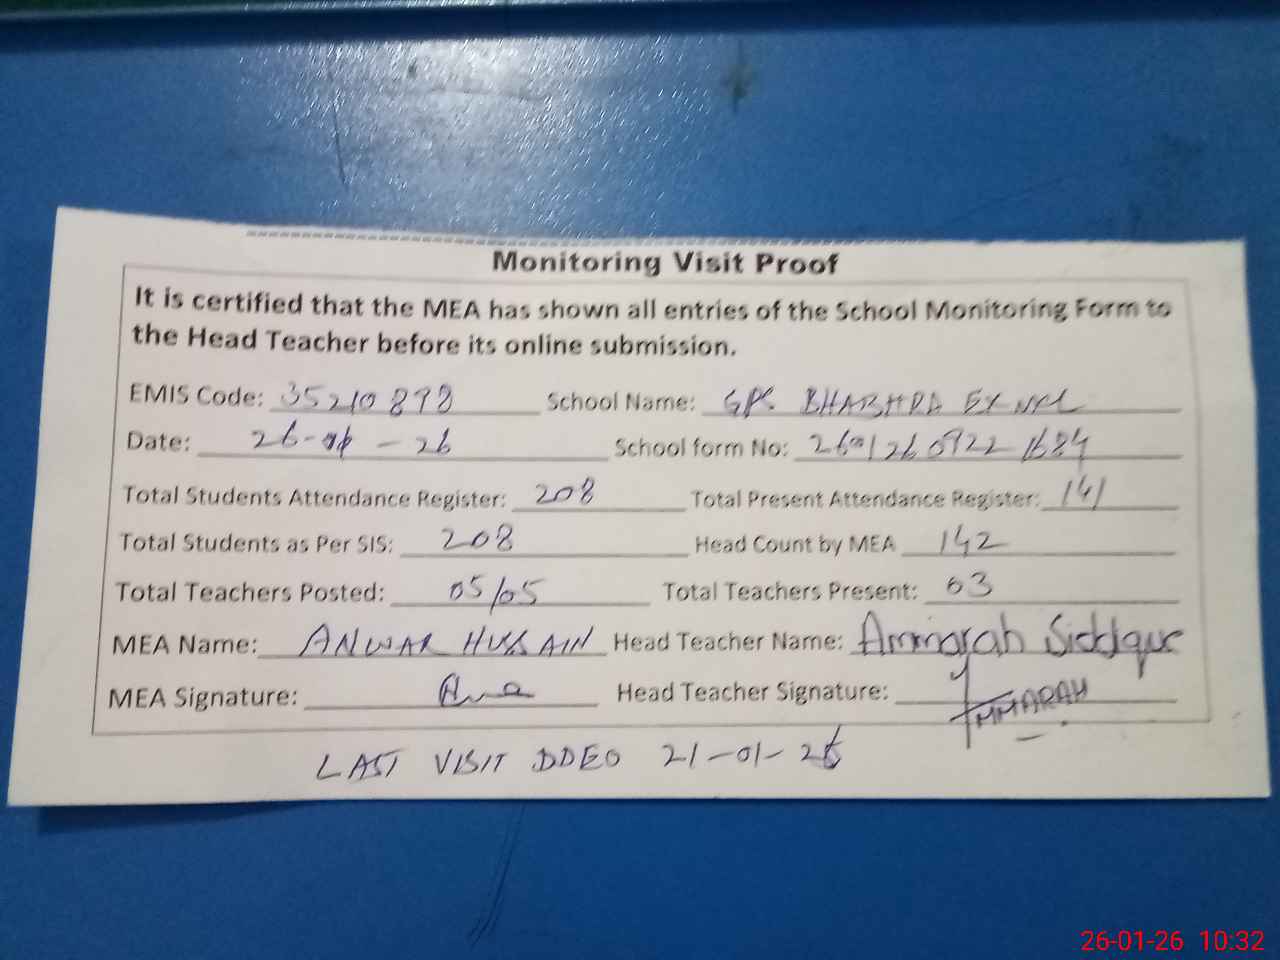 Monitoring Visit Proof
It is certified that the MEA has shown all entries of the School Monitoring Form to
the Head Teacher before its online submission.
EMIS Code: 35210898 School Name: GPS BHABHRA
Date: 26-01-26 School form No:
Total Students Attendance Register: 208 Total Present Attendance Register: 141
Total Students as Per SIS: 208 Head Count by MEA 142
Total Teachers Posted: 05/05 Total Teachers Present: 03
MEA Name: ANWAR HUSSAIN Head Teacher Name: Ammarah Siddique
MEA Signature: Head Teacher Signature: AMMARAH
LAST VISIT DDEO 21-01-26
26-01-26 10:32